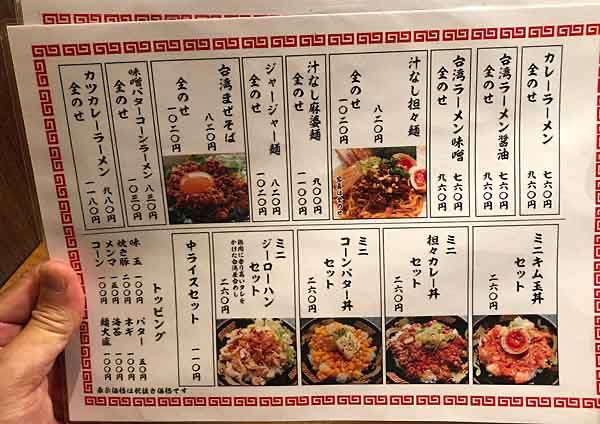 カレーラーメン 七六〇円
全のせ 九六〇円
台湾ラーメン醤油 七六〇円
全のせ 九六〇円
台湾ラーメン味噌 七六〇円
全のせ 九六〇円
汁なし担々麺 八二〇円
全のせ 一〇二〇円
写真は全のせ
汁なし麻婆麺 九〇〇円
全のせ 一一〇〇円
ジャージャー麺 八二〇円
全のせ 一〇二〇円
台湾まぜそば 八二〇円
全のせ 一〇二〇円
味噌バターコーンラーメン 八三〇円
全のせ 一〇三〇円
カツカレーラーメン 九八〇円
全のせ 一一八〇円
ミニキム玉丼
セット
二六〇円
ミニ
担々カレー丼
セット
二六〇円
ミニ
コーンバター丼
セット
二六〇円
ミニ
ジーローハン
セット
鶏肉に香り高いタレを
かけた台湾屋台めし
二六〇円
中ライスセット 一一〇円
トッピング
味玉 一〇〇円
焼き豚 一五〇円
メンマ 一〇〇円
コーン 一〇〇円
バター 五〇円
ネギ 一〇〇円
海苔 一〇〇円
麺大盛 一〇〇円
表示価格は税抜き価格です